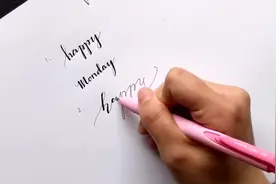 1. happy
Monday
2. happy